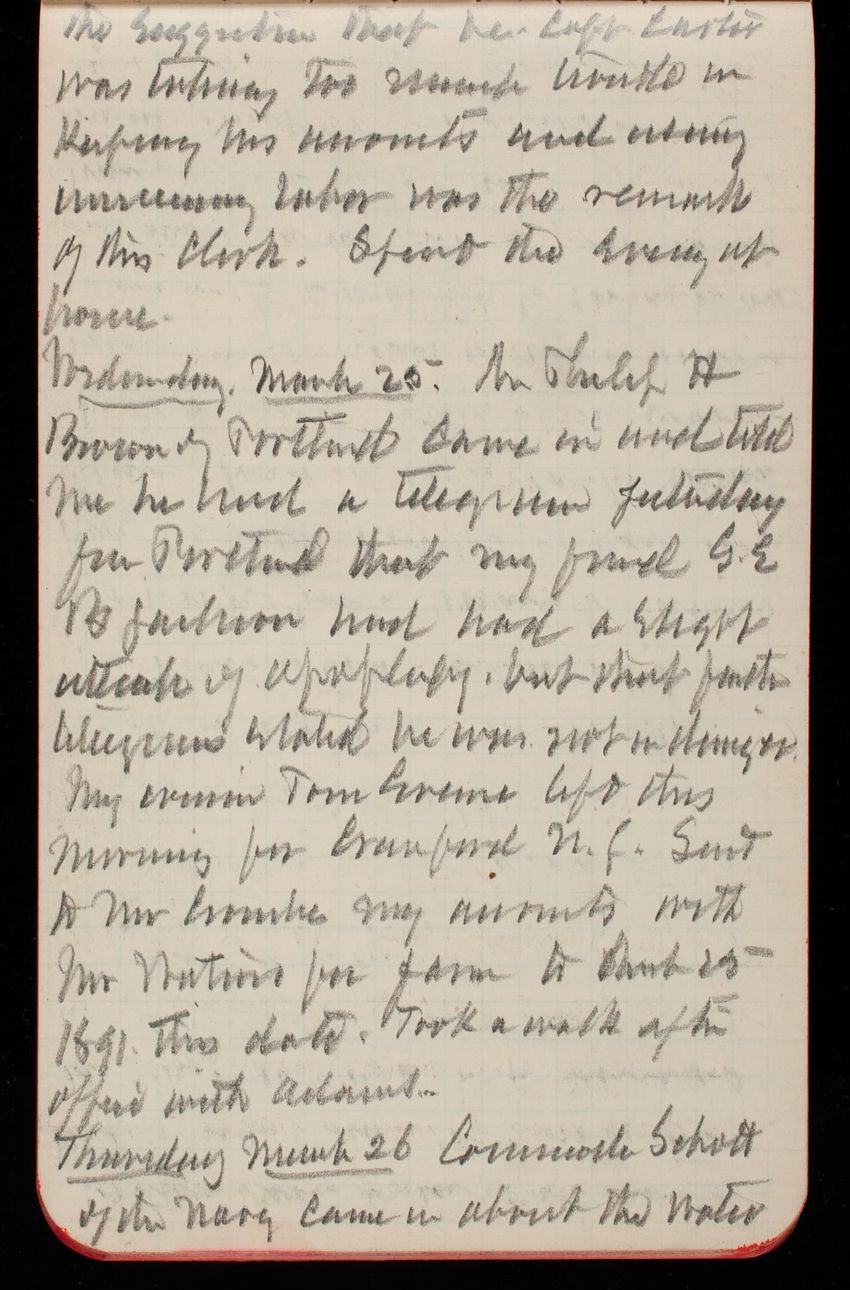 the suggestion that he. Capt Carter
was taking too much trouble in
keeping his accounts and using
unnecessary labor was the remark
of this Clerk. Spent the evening at
home.
Wednesday. March 25. Mr Philip H
Brown of Portland came in and told
me he had a telegram yesterday
from Portland that my friend G. E
B Jackson had had a slight
attack of apoplexy. but that further
telegrams stated he was not in danger.
My cousin Tom Greene left this
morning for Cranford N. J. Sent
to Mr Crombie my accounts with
Mr Watson for farm to 25
1891 this date. Took a walk after
office with Adams.
Thursday March 26 Commodore Schott
of the Navy came in about the Water